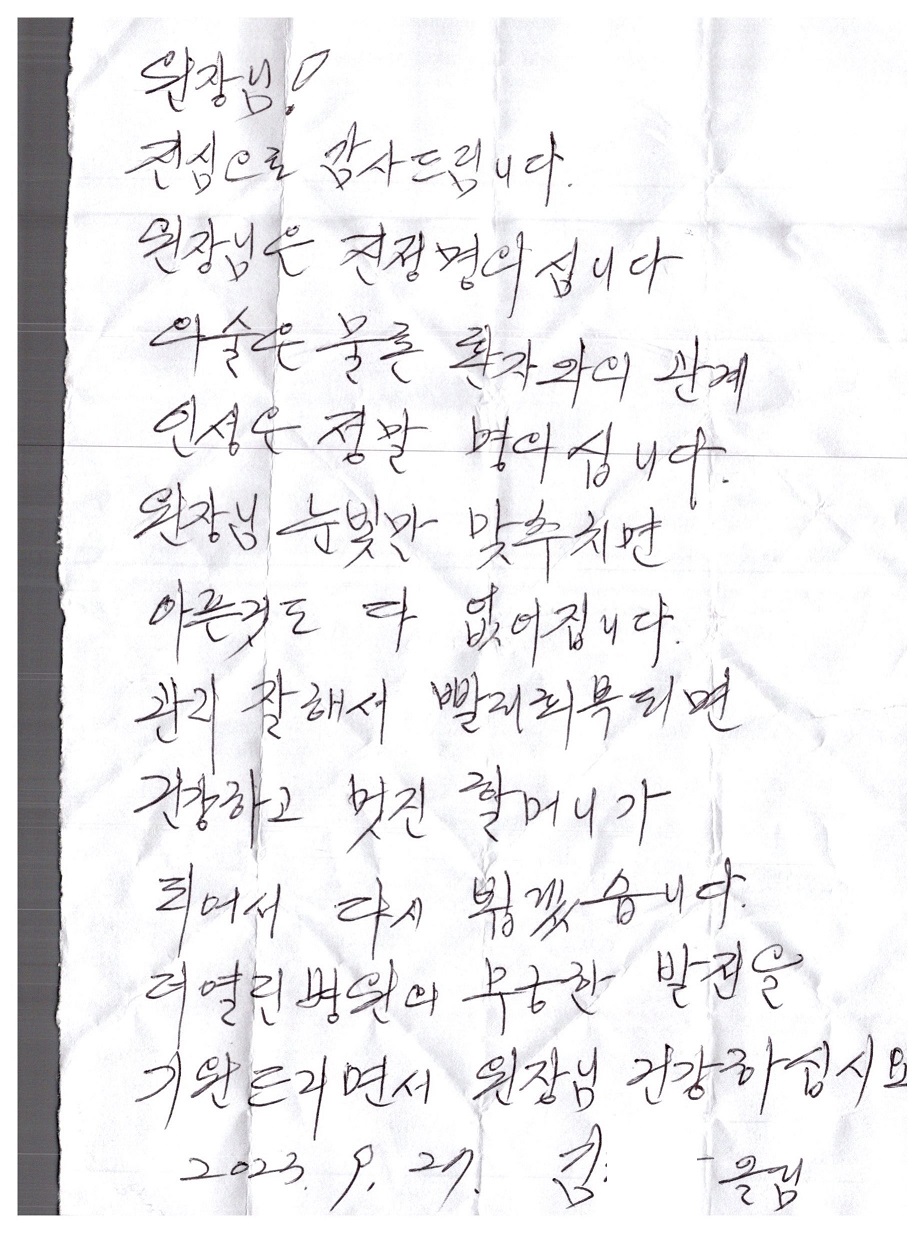 원장님!
진심으로 감사드립니다.
원장님은 진정 명의십니다
의술은 물론 환자와의 관계
인성은 정말 명의십니다.
원장님 눈빛만 맞추치면
아픈것도 다 없어집니다.
관리 잘해서 빨리회복되면
건강하고 멋진 할머니가
되어서 다시 뵙겠습니다.
더열린병원의 무궁한 발전을
기원드리면서 원장님 건강하십시요
2023. 9. 27. 김 올림